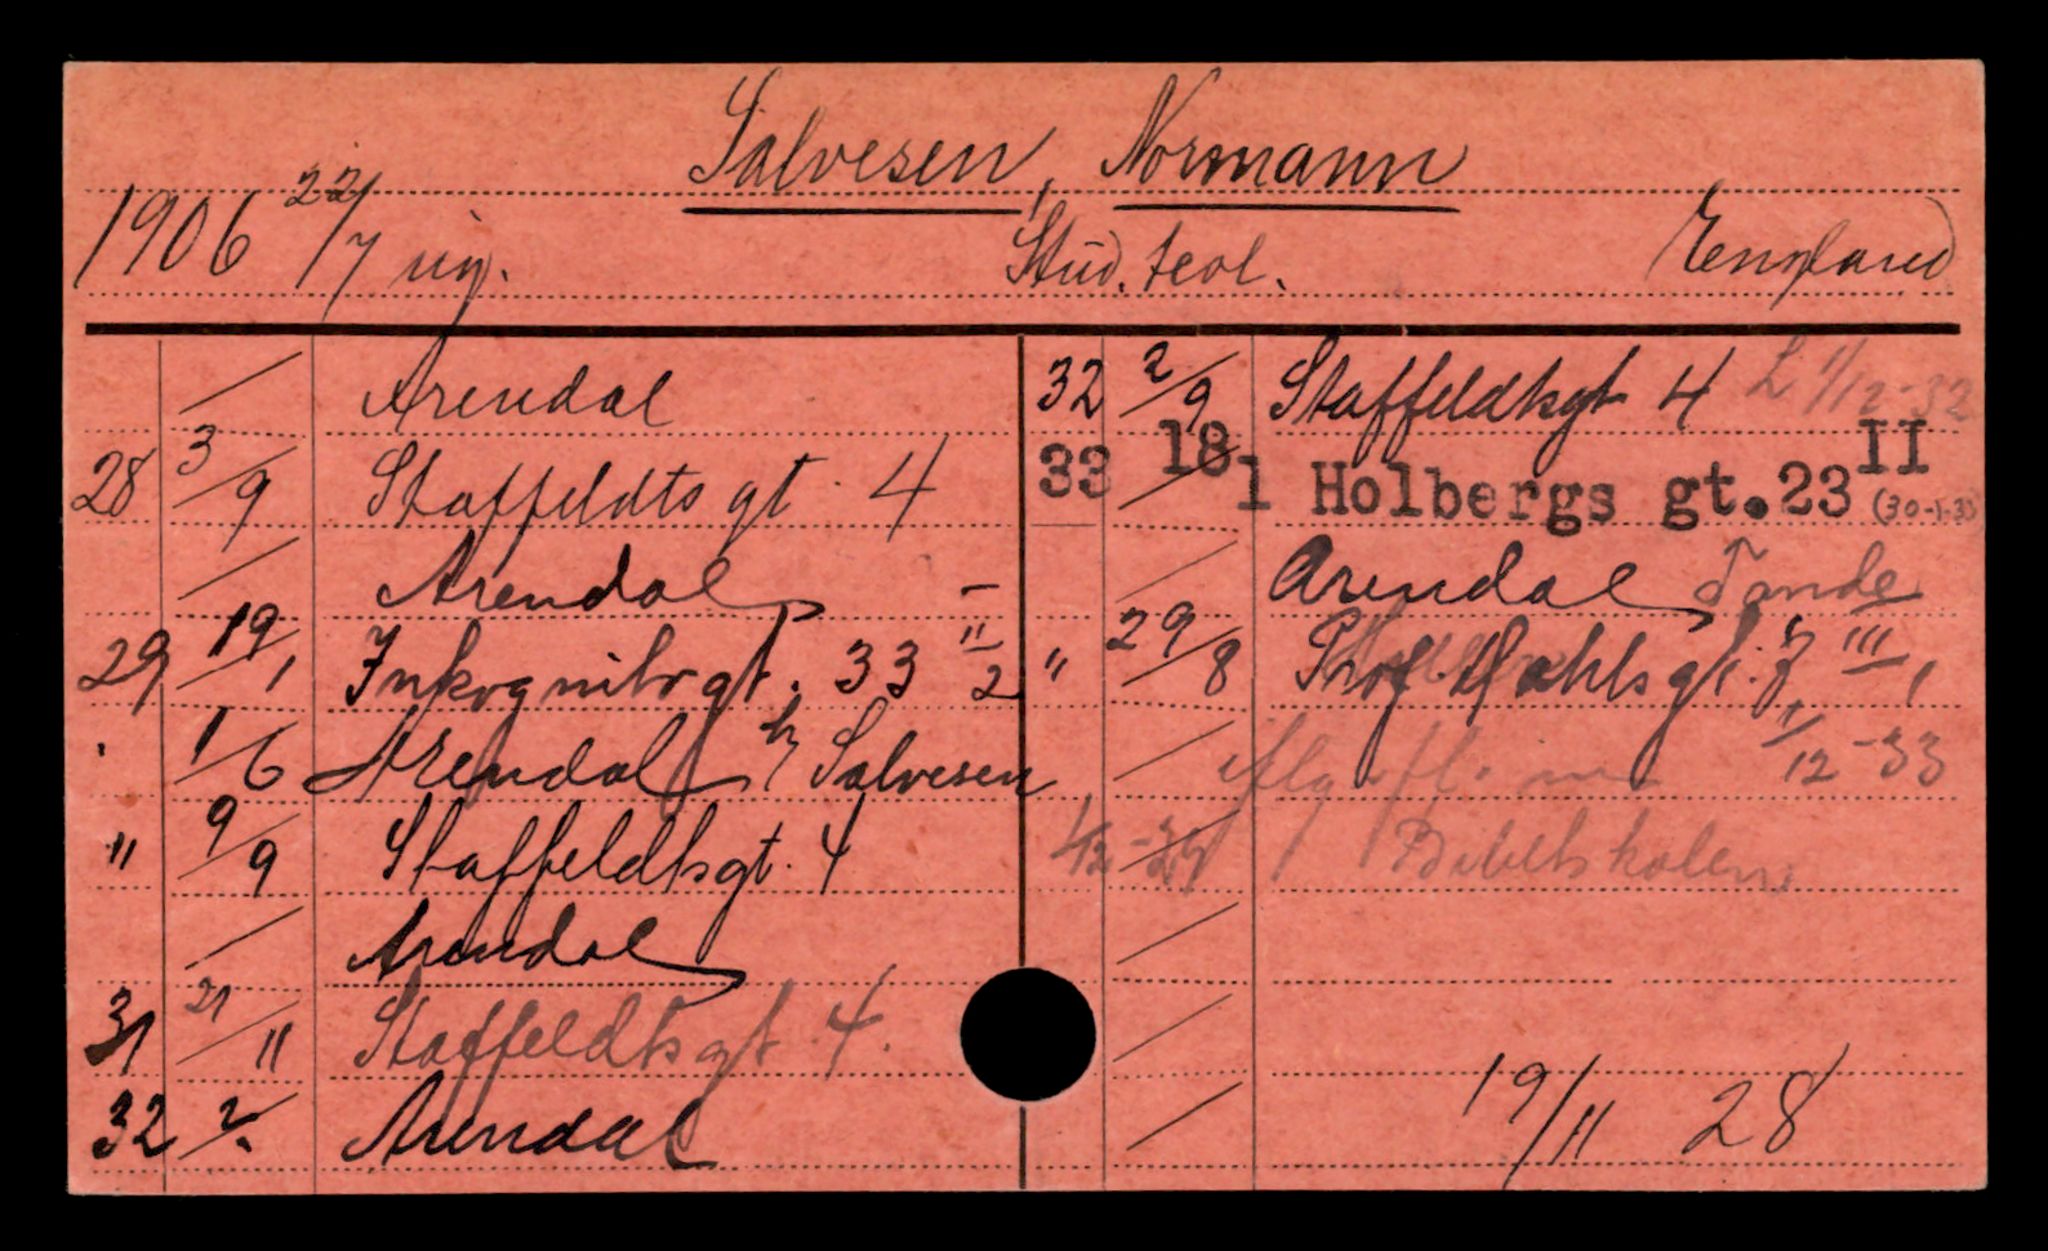 Salvesen, Normann
1906 22/7 ug. Stud. teol. England
/ Arendal
28 3/9 Staffeldts gt. 4
/ Arendal –
29 19/1 Inkognitogt. 33 II 2
1/6 Arendal h/ Salvesen
" 9/9 Staffeldtsgt. 4
/ Arendal
31 21/11 Staffeldtsgt. 4.
32 2/. Arendal
32 2/9 Staffeldtsgt 4 L 1/12-32
33 18/1 Holbergs gt. 23 II (30-1-33)
/ Arendal Tande
" 29/8 Prof. Dahlsgt. 7 III 1
/ 1/12-33
Bibelskolen
/
/
/ 19/11 28